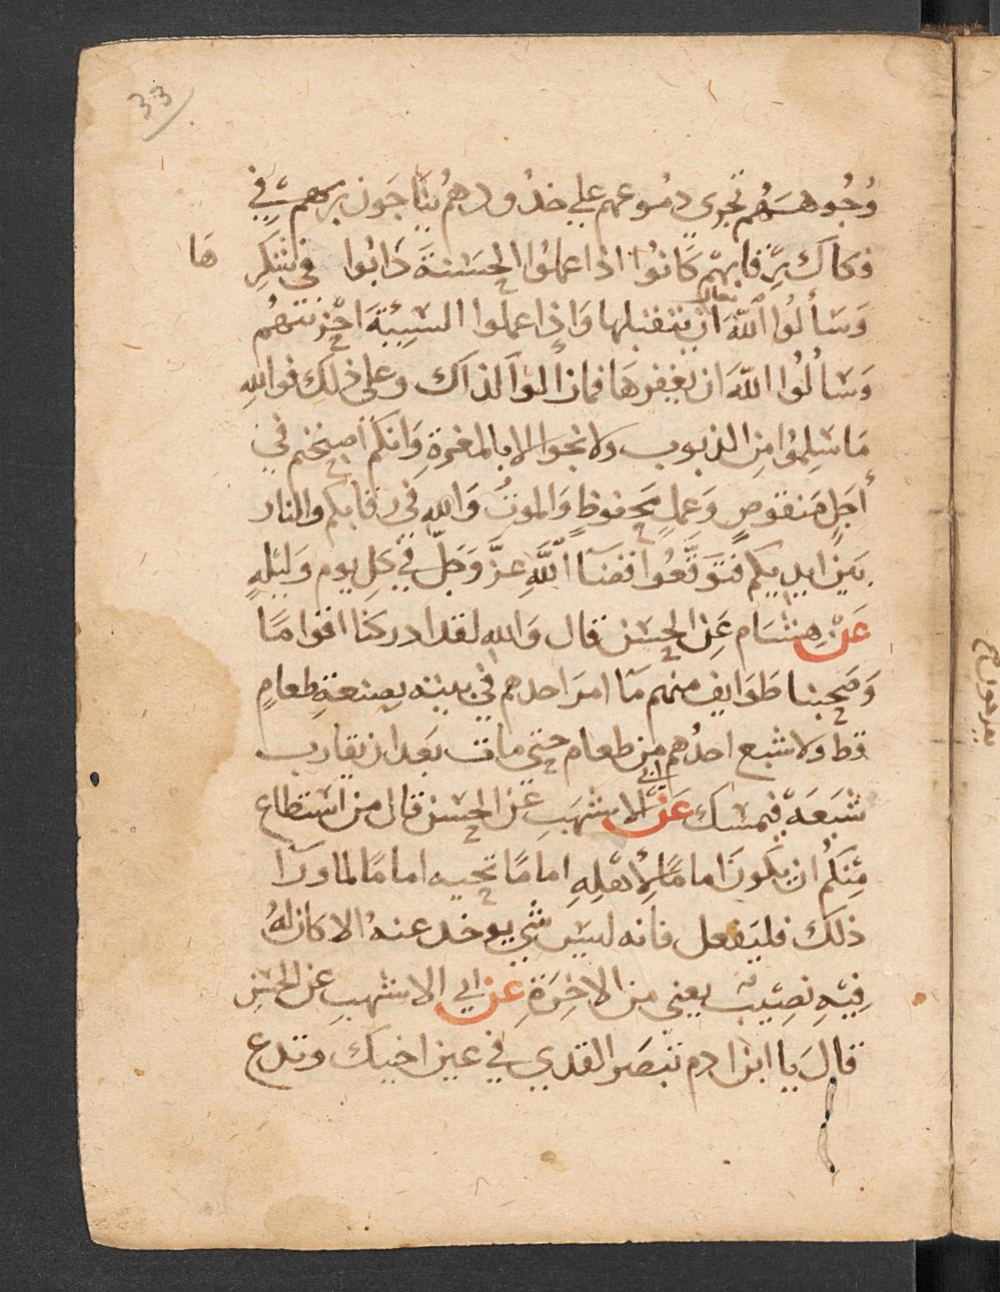 33
وُجُوههُم تجري دموعهم علي خدُودهُم يناجَون ربهم في
فكاك رِقابهم كانوُا اذا عملوُا الحسَنة دَابوُا في شكرِها
وَسَألوُا اللهَ تعالى ان يتقبلها وَاذا عملوا السيئةَ احْزنتهُم
وَسَألوُا اللهَ ان يغفرهَا فمازالوُا كذاك وعلى ذلك فوالله
مَا سَلِمُوا مِن الذنوب ولا نجوا الا بالمغفرةِ وَانكم اصبحتم في
أجَلٍ مَنقوصٍ وَعملٍ مَحفوظٍ وَالموتُ وَاللهِ في رقابكم والنار
بَين ايديكم فتوَقَّعُوا قضَآ اللَّهِ عزَّ وَجَلّ في كلِ يوم وَليلةٍ
عَن هِشام عَن الحسَن قال وَالله لقد ادركنا اقوامًا
وَصَحِبنا طَوَايف منهم مَا امرَ احدهم في بيته بصنعةِ طعامٍ
قط ولا شبع احدُهم من طعام حتى مات بَعد ان يقارب
شبَعَه فيمسك عَن ابي الاشهَبِ عَن الحسَن قال من استطاع
مِنكُم ان يكونَ امامًا لِأهلِهِ امامًا لحيه امامًا لما ورَآ
ذلك فليَفعل فانه ليسَ شي يوخذ عنهُ الا كان لهُ
فِيهِ نصِيبٌ يعني من الاخِرَةِ عن ابي الاشهبِ عَن الحسَنِ
قالَ يا ابن ادم تبصَر القذي في عين اخيك وتدع